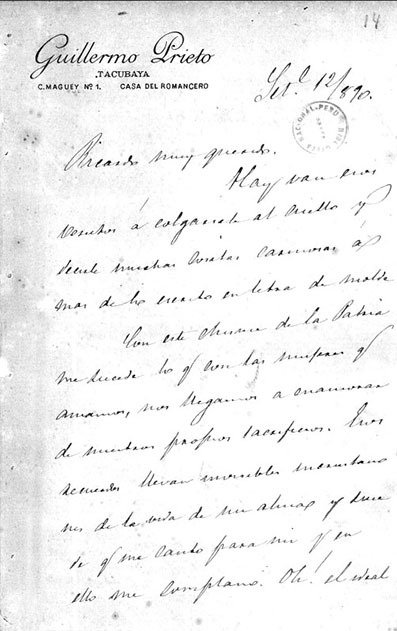 14
Guillermo Prieto
TACUBAYA
C. MAGUEY Nº 1. CASA DEL ROMANCERO
Set.e 12/890.
Ricardo muy querido.
Hay van esos
á colgarsete al cuello y
decirte muchas cositas cariñosas á
mas de lo escrito en letra de molde
Con este chisme de la Patria
me sucede lo q con las mujeres q
amamos, nos llegamos a enamorar
de nuestros propios sacrificios. Esos
recuerdos llevan invisibles incrustacio
nes de la vida de mi alma y
de q me canto para mi y en
ello me complazco. Oh! el ideal